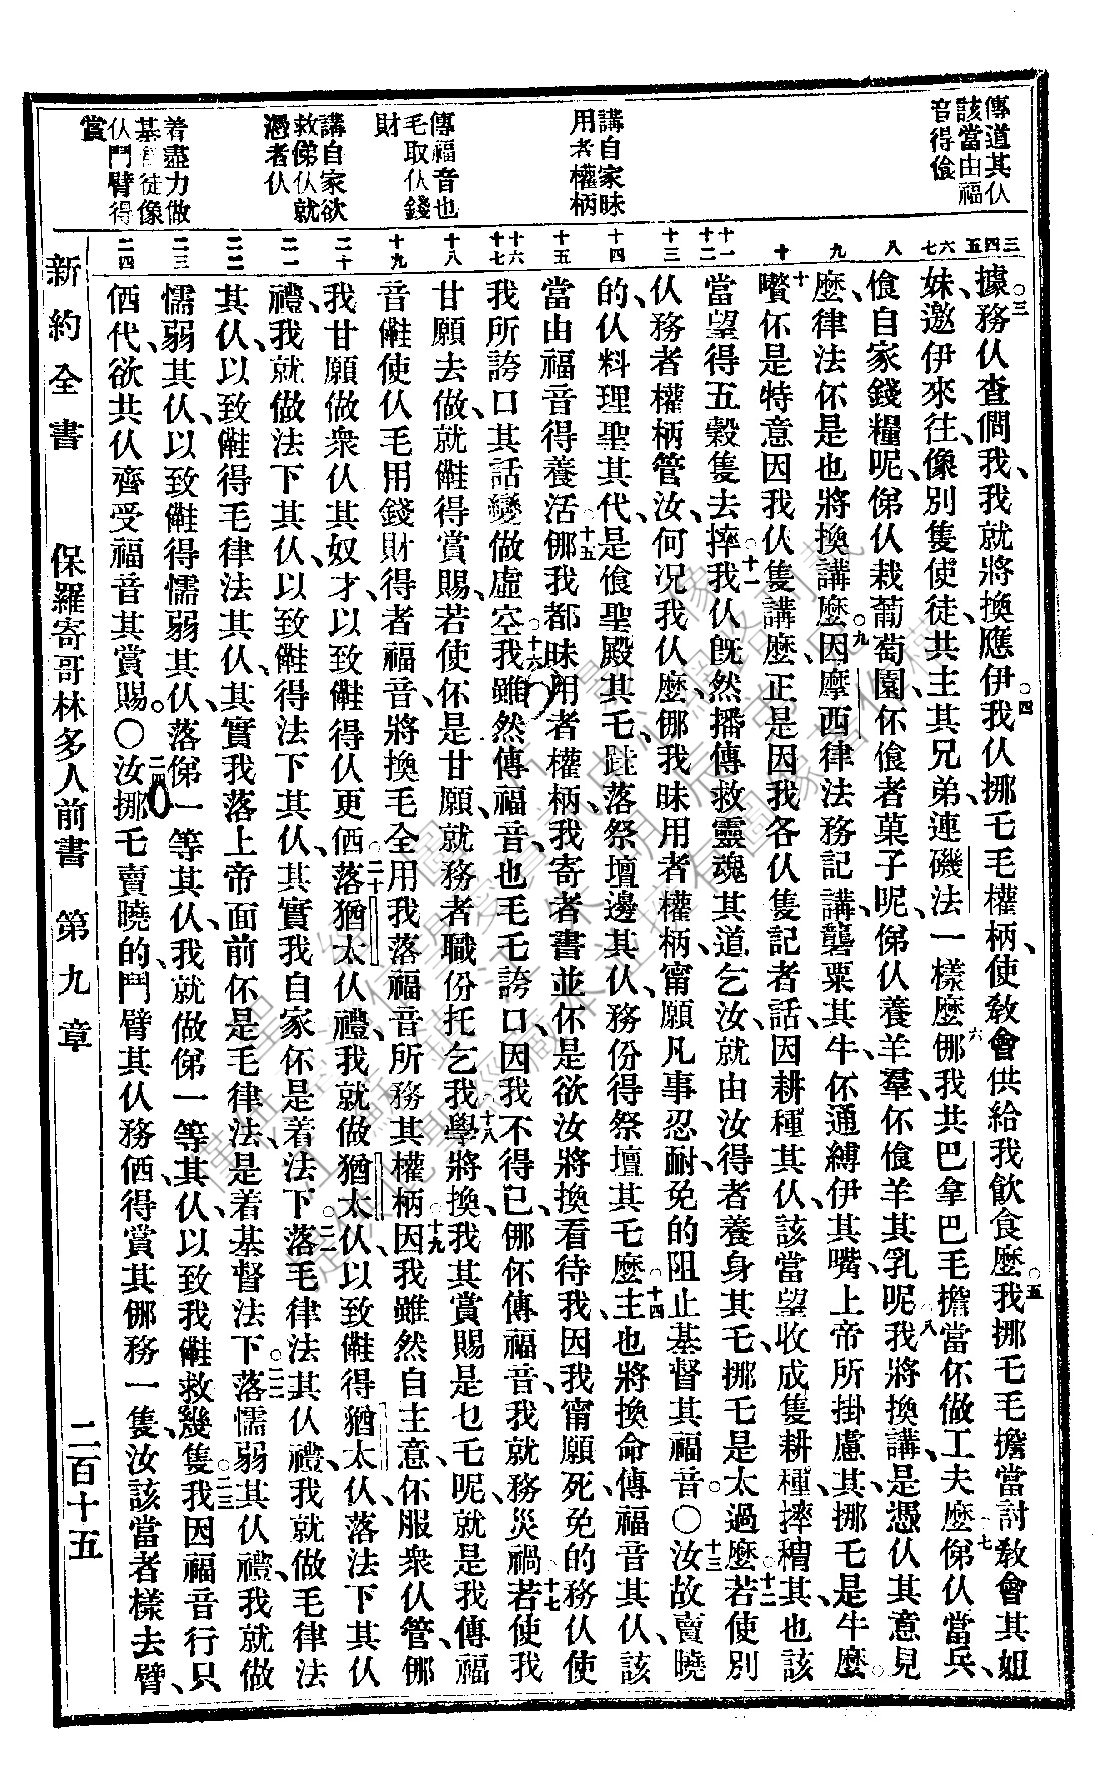 傳道其仈
該當由福
音得飡
講自家昧
用者權柄
傳福音也
毛取仈錢
財
講自家欲
救俤仈就
憑者仈
着盡力做
基督徒像
仈鬥臂得
賞
三 四 五 六 七 八 九 十 十一 十二 十三 十四 十五 十六 十七 十八 十九 二十 二一 二二 二三 二四
據務仈查僩我、我就將換應伊、○四我仈挪乇毛權柄、使教會供給我飲食麽、○五我挪乇毛擔當討教會其姐
妹、邀伊來往、像別隻使徒共主其兄弟、連磯法一樣麽、○六㑚我共巴拿巴毛擔當伓做工夫麽、○七俤仈當兵、
飡自家錢糧呢、俤仈栽葡萄園、伓飡者菓子呢、俤仈養羊羣、伓飡羊其乳呢、○八我將換講、是憑仈其意見
麽、律法伓是也將換講麽、○九因摩西律法務記講、礱粟其牛、伓通縛伊其嘴、上帝所掛慮其、挪乇是牛麽、○
十嚽伓是特意因我仈隻講麽、正是因我各仈隻記者話、因耕種其仈、該當望收成隻耕種、摔穧其、也該
當望得五穀隻去摔、○十一我仈旣然播傳救靈魂其道乞汝、就由汝得者養身其乇、挪乇是太過麽、○十二若使別
仈務者權柄管汝、何况我仈麽、㑚我昧用者權柄、甯願凡事忍耐、免的阻止基督其福音。○十三汝故賣曉
的仈料理聖其代、是飡聖殿其乇、跬落祭壇邊其仈、務份得祭壇其乇麽、○十四主也將換命傳福音其仈、該
當由福音得養活、○十五㑚我都昧用者權柄、我寄者書、並伓是欲汝將換看待我、因我甯願死、免的務仈使
我所誇口其話變做虛空、○十六我雖然傳福音、也毛乇誇口、因我不得已、㑚伓傳福音、我就務災禍、○十七若使我
甘願去做、就𠆧得賞賜、若使伓是甘願、就務者職份托乞我學將換、○十八我其賞賜是乜乇呢、就是我傳福
音𠆧使仈毛用錢財得者福音、將換毛全用我落福音所務其權柄、○十九因我雖然自主意、伓服衆仈管、㑚
我甘願做衆仈其奴才、以致𠆧得仈更価、○二十落猶太仈禮、我就做猶太仈、以致𠆧得猶太仈、落法下其仈
禮、我就做法下其仈、以致𠆧得法下其仈、其實我自家伓是着法下、○二一落毛律法其仈禮、我就做毛律法
其仈、以致𠆧得毛律法其仈、其實我落上帝面前伓是毛律法、是着基督法下、○二二落懦弱其仈禮、我就做
懦弱其仈、以致𠆧得懦弱其仈、落俤一等其仈、我就做俤一等其仈、以致我𠆧救幾隻、○二三我因福音行只
価代、欲共仈齊受福音其賞賜。○二四汝挪乇賣曉的鬥臂其仈務価、得賞其㑚務一隻、汝該當者樣去臂、
新約全書 保羅寄哥林多人前書 第九章 二百十五